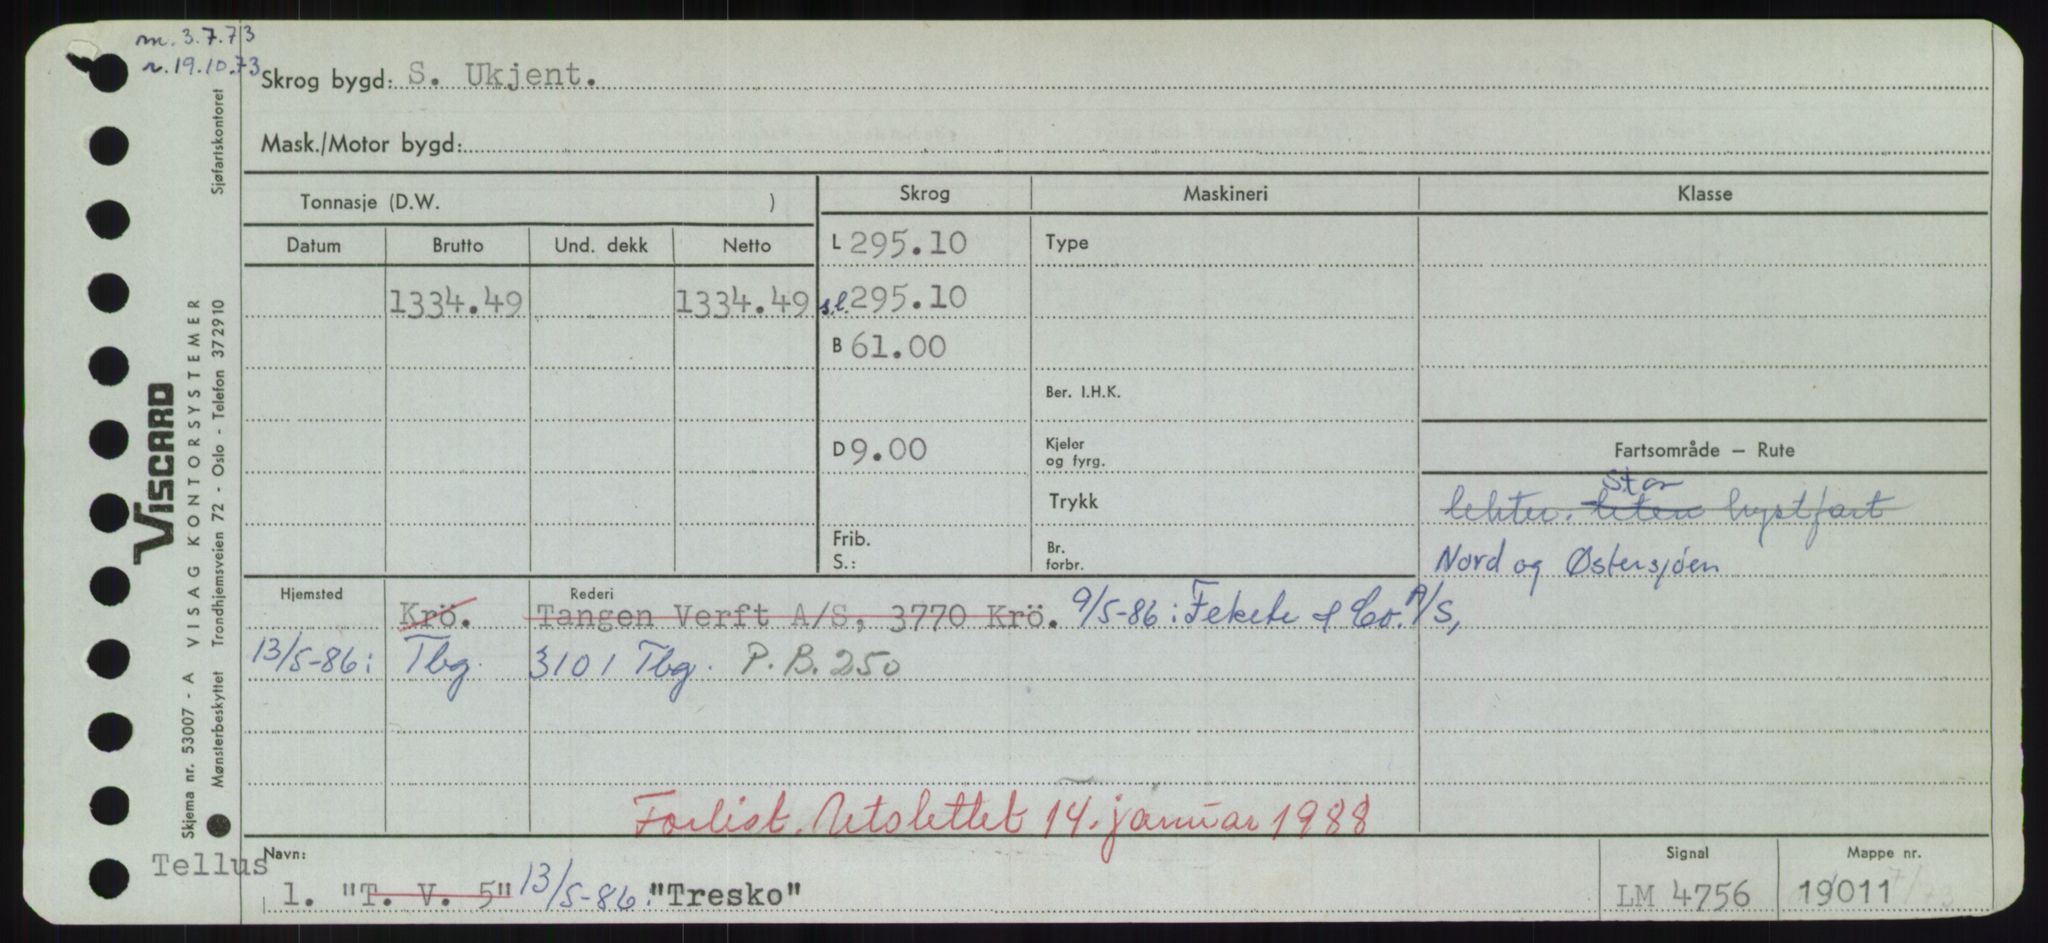 m. 3.7.73
r. 19.10.73
Skrog bygd: S. Ukjent.
Mask./Motor bygd:
Tonnasje (D.W. )
Skrog
Maskineri
Klasse
Datum
Brutto
Und. dekk
Netto
L 295.10
Type
1334.49
1334.49
s.l. 295.10
B 61.00
Ber. I.H.K.
D 9.00
Kjeler og fyrg.
Fartsområde – Rute
Trykk
Stor
lekter. liten kystfart
Frib.
S.:
Br. forbr.
Nord og Østersjøen
Hjemsted
Rederi
Krö.
Tangen Verft A/S, 3770 Krö. 9/5-86: Fekete & Co. A/S,
13/5-86: Tbg.
3101 Tbg. P.B. 250
Forlist. Utslettet 14. januar 1988
Navn:
Tellus
1. "T. V. 5" 13/5-86: "Tresko"
Signal
LM 4756
Mappe nr.
19011
7/73
VISCARD
VISAG KONTORSYSTEMER
Skjema nr. 53007 - A
Mønsterbeskyttet
Trondhjemsveien 72 - Oslo - Telefon 372910
Sjøfartskontoret